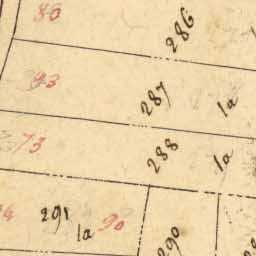 80
286
93
287
1a
73
288
1a
291
1a
90
290